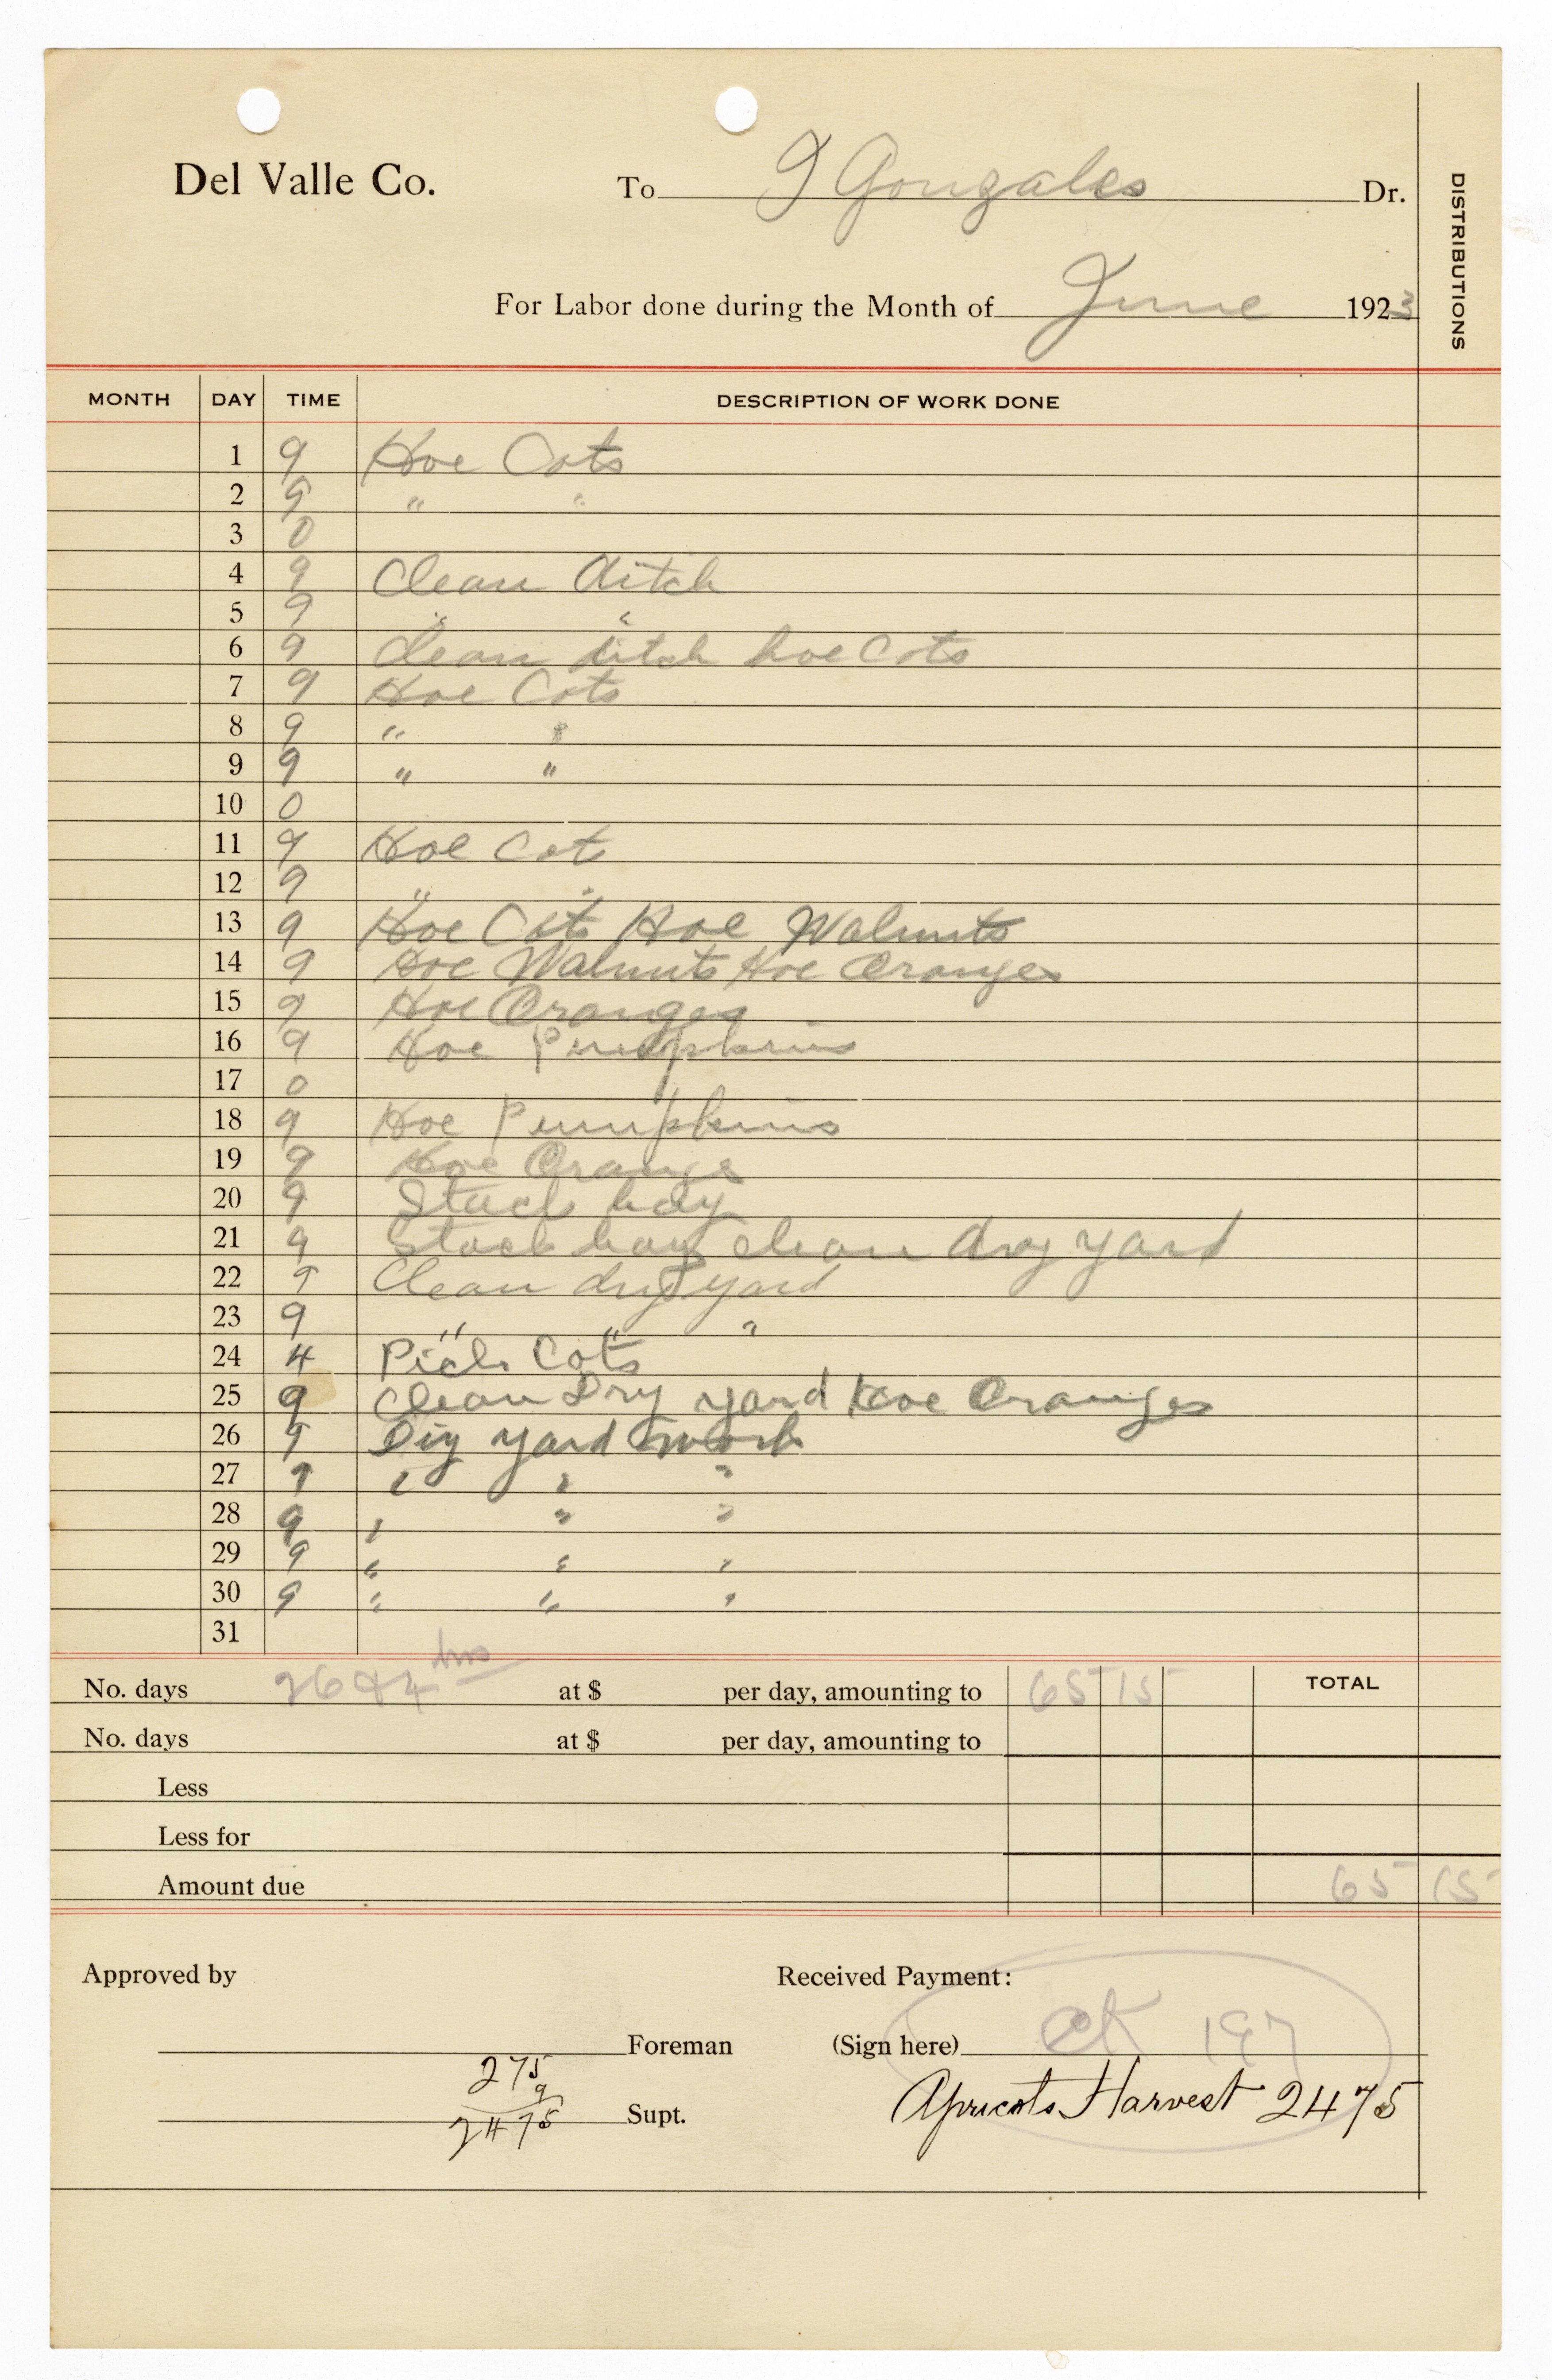 Del Valle Co. To J Gonzales Dr.
DISTRIBUTIONS
For Labor done during the Month of June 1923
MONTH DAY TIME DESCRIPTION OF WORK DONE
1 9 Hoe Cots
2 9 " "
3 0
4 9 Clean ditch
5 9 " "
6 9 Clean ditch hoe Cots
7 9 Hoe Cots
8 9 " "
9 9 " "
10 0
11 9 Hoe Cot
12 9 " "
13 9 Hoe Cots Hoe Walnuts
14 9 Hoe Walnuts Hoe Oranges
15 9 Hoe Oranges
16 9 Hoe Pumpkins
17 0
18 9 Hoe Pumpkins
19 9 Hoe Orange
20 9 Stack hay
21 9 Stack hay clean dry yard
22 9 Clean dry yard
23 9 " " "
24 4 Pick Cots
25 9 Clean Dry yard Hoe Oranges
26 9 Dry yard work
27 9 " " "
28 9 " " "
29 9 " " "
30 9 " " "
31
No. days 26 & 4 hrs at $ per day, amounting to 65 15 TOTAL
No. days at $ per day, amounting to
Less
Less for
Amount due 65 15
Approved by Received Payment:
Foreman (Sign here) CK 197
275
9
2475
Supt. Apricots Harvest 2475